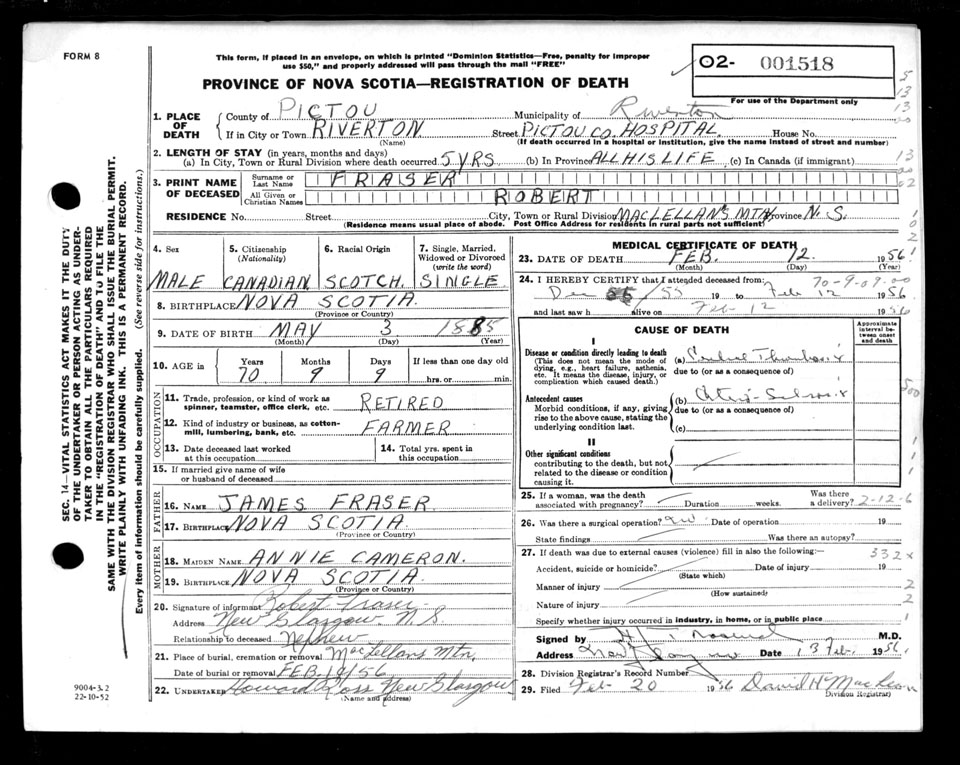 FORM 8
This form, if placed in an envelope, on which is printed "Dominion Statistics—Free, penalty for improper
use $50," and properly addressed will pass through the mail "FREE"
PROVINCE OF NOVA SCOTIA—REGISTRATION OF DEATH
02- 001518
For use of the Department only
1. PLACE OF DEATH
County of PICTOU Municipality of Riverton
If in City or Town RIVERTON Street PICTOU CO. HOSPITAL House No.
(Name) (If death occurred in a hospital or institution, give the name instead of street and number)
2. LENGTH OF STAY (in years, months and days)
(a) In City, Town or Rural Division where death occurred 5 YRS (b) In Province ALL HIS LIFE (c) In Canada (if immigrant)
3. PRINT NAME OF DECEASED
Surname or Last Name FRASER
All Given or Christian Names ROBERT
RESIDENCE No. Street City, Town or Rural Division MACLELLAN'S MTN Province N.S.
(Residence means usual place of abode. Post Office Address for residents in rural parts not sufficient)
4. Sex 5. Citizenship (Nationality) 6. Racial Origin 7. Single, Married, Widowed or Divorced (write the word)
MALE CANADIAN SCOTCH. SINGLE.
8. BIRTHPLACE NOVA SCOTIA.
(Province or Country)
9. DATE OF BIRTH MAY 3 1885
(Month) (Day) (Year)
10. AGE in Years Months Days If less than one day old
70 9 9 hrs. or min.
OCCUPATION
11. Trade, profession, or kind of work as
spinner, teamster, office clerk, etc. RETIRED
12. Kind of industry or business, as cotton-
mill, lumbering, bank, etc. FARMER
13. Date deceased last worked
at this occupation
14. Total yrs. spent in
this occupation
15. If married give name of wife
or husband of deceased
FATHER
16. NAME JAMES FRASER.
17. BIRTHPLACE NOVA SCOTIA.
(Province or Country)
MOTHER
18. MAIDEN NAME ANNIE CAMERON.
19. BIRTHPLACE NOVA SCOTIA.
(Province or Country)
20. Signature of informant Robert Fraser
Address New Glasgow N.S.
Relationship to deceased Nephew
21. Place of burial, cremation or removal MacLellans Mtn.
Date of burial or removal FEB. /56
22. UNDERTAKER Howard Ross New Glasgow
(Name and address)
MEDICAL CERTIFICATE OF DEATH
23. DATE OF DEATH FEB. 12. 1956
(Month) (Day)
24. I HEREBY CERTIFY that I attended deceased from: 70-9-09.00
Dec /55 19 to Feb 12 1956
and last saw h alive on Feb 12 1956
CAUSE OF DEATH
Approximate interval between onset and death
I
Disease or condition directly leading to death
(This does not mean the mode of
dying, e.g., heart failure, asthenia,
etc. It means the disease, injury, or
complication which caused death.)
(a)
due to (or as a consequence of)
Antecedent causes
Morbid conditions, if any, giving
rise to the above cause, stating the
underlying condition last.
(b)
due to (or as a consequence of)
(c)
II
Other significant conditions
contributing to the death, but not
related to the disease or condition
causing it.
25. If a woman, was the death
associated with pregnancy? Duration weeks.
Was there
a delivery? 2-12-6
26. Was there a surgical operation? Date of operation 19
State findings Was there an autopsy?
27. If death was due to external causes (violence) fill in also the following:— 332x
Accident, suicide or homicide? Date of injury 19
(State which)
Manner of injury
(How sustained)
Nature of injury
Specify whether injury occurred in industry, in home, or in public place
Signed by M.D.
Address New Glasgow Date 13 Feb. 1956
28. Division Registrar's Record Number
29. Filed Feb 20 1956 David H MacLean
Division Registrar
SEC. 14—VITAL STATISTICS ACT MAKES IT THE DUTY
OF THE UNDERTAKER OR PERSON ACTING AS UNDER-
TAKER TO OBTAIN ALL THE PARTICULARS REQUIRED
IN THE "REGISTRATION OF DEATH" AND TO FILE THE
SAME WITH THE DIVISION REGISTRAR WHO SHALL ISSUE THE BURIAL PERMIT.
WRITE PLAINLY WITH UNFADING INK. THIS IS A PERMANENT RECORD.
Every item of information should be carefully supplied. (See reverse side for instructions.)
9004-3.2
22-10-52